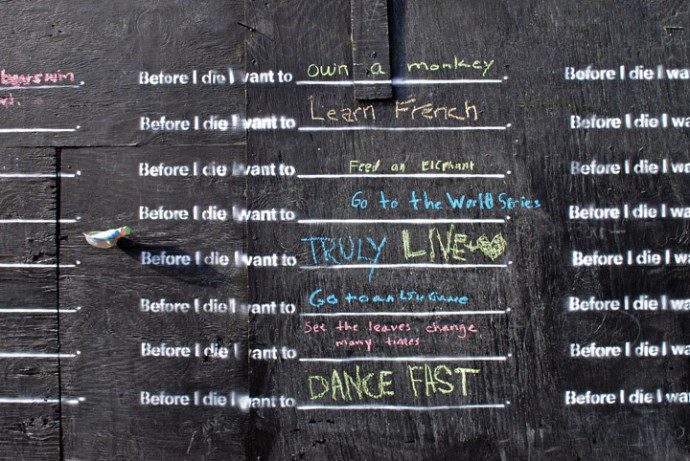 Before I die I want to own a monkey.
Before I die I want to Learn French.
Before I die I want to Feed an Elephant.
Before I die I want to Go to the World Series.
Before I die I want to TRULY LIVE.
Before I die I want to Go to an game.
Before I die I want to See the leaves change many times.
Before I die I want to DANCE FAST.
Before I die I wa
Before I die I wa
Before I die I wa
Before I die I wa
Before I die I wa
Before I die I wa
Before I die I wa
Before I die I wa